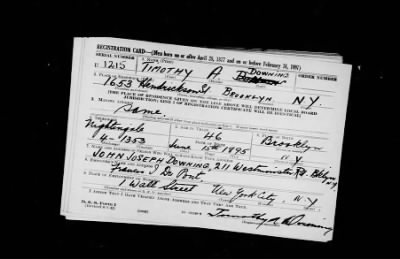 REGISTRATION CARD—(Men born on or after April 28, 1877 and on or before February 16, 1897)
SERIAL NUMBER
1. NAME (Print)
ORDER NUMBER
U 1215
TIMOTHY A DOWNING
2. PLACE OF RESIDENCE (Print)
1653 Hendrickson St BROOKLYN N.Y.
[THE PLACE OF RESIDENCE GIVEN ON THE LINE ABOVE WILL DETERMINE LOCAL BOARD JURISDICTION; LINE 2 OF REGISTRATION CERTIFICATE WILL BE IDENTICAL]
3. MAILING ADDRESS
Same
4. TELEPHONE
Nightingale
4-1353
46
June 15th 1895
Brooklyn
N.Y.
JOHN JOSEPH DOWNING, 211 Westminster Rd. Bklyn N.Y.
Francis I Du Pont
1 Wall Street New York City, N.Y.
I AFFIRM THAT I HAVE VERIFIED ABOVE ANSWERS AND THAT THEY ARE TRUE.
D. S. S. Form 1
Timothy A Downing